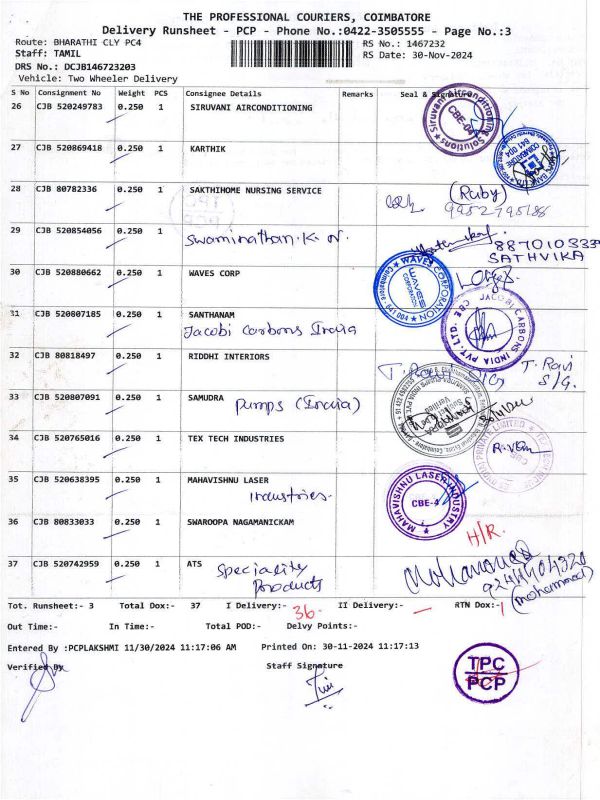 THE PROFESSIONAL COURIERS, COIMBATORE
Delivery Runsheet - PCP - Phone No.:0422-3505555 - Page No.:3
Route: BHARATHI CLY PC4 RS No.: 1467232
Staff: TAMIL RS Date: 30-Nov-2024
DRS No.: DCJB146723203
Vehicle: Two Wheeler Delivery
S No Consignment No Weight PCS Consignee Details Remarks Seal & Signature
26 CJB 520249783 0.250 1 SIRUVANI AIRCONDITIONING
Siruvani Airconditioning Solutions CBE-04
27 CJB 520869418 0.250 1 KARTHIK
COIMBATORE 641 004
28 CJB 80782336 0.250 1 SAKTHIHOME NURSING SERVICE (Ruby)
9952795188
29 CJB 520854056 0.250 1
Swaminathan.K.N. 887010333
SATHVIKA
30 CJB 520880662 0.250 1 WAVES CORP
WAVES CORPORATION
31 CJB 520807185 0.250 1 SANTHANAM
Jacobi Carbons India
JACOBI CARBONS INDIA PVT. LTD. CBE
32 CJB 80818497 0.250 1 RIDDHI INTERIORS T. Ravi S/G T. Ravi
S/G.
33 CJB 520807091 0.250 1 SAMUDRA
Pumps (India)
34 CJB 520765016 0.250 1 TEX TECH INDUSTRIES
35 CJB 520638395 0.250 1 MAHAVISHNU LASER
Industries.
MAHAVISHNU LASER INDUSTRY CBE-4
36 CJB 80833033 0.250 1 SWAROOPA NAGAMANICKAM H/R.
37 CJB 520742959 0.250 1 ATS
Speciality
Products
(mohammed)
Tot. Runsheet:- 3 Total Dox:- 37 I Delivery:- 36- II Delivery:- — RTN Dox:- 1
Out Time:- In Time:- Total POD:- Delvy Points:-
Entered By :PCPLAKSHMI 11/30/2024 11:17:06 AM Printed On: 30-11-2024 11:17:13
Verified By Staff Signature
TPC
PCP